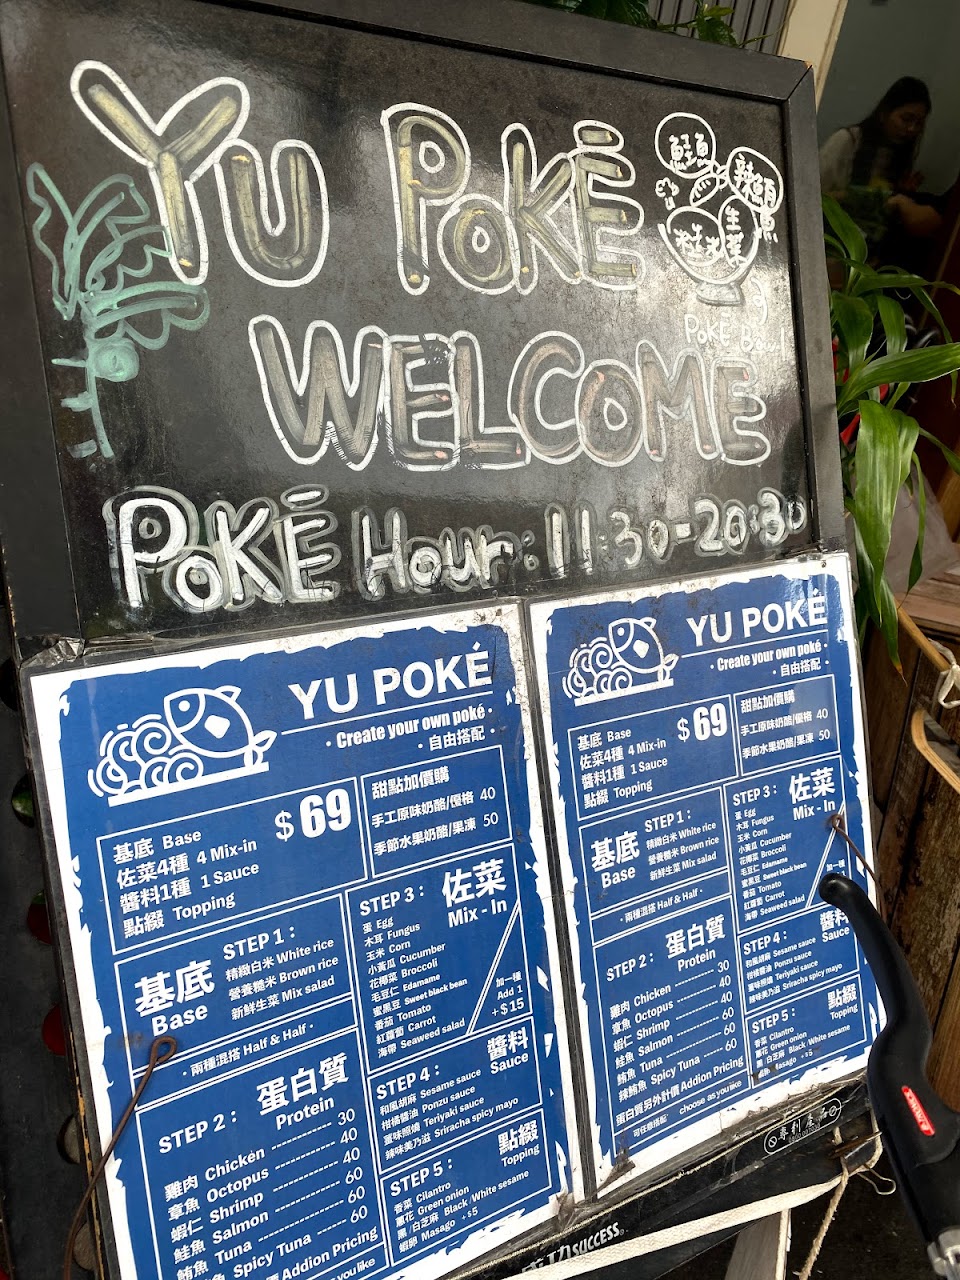 YU POKÉ
鮭魚
辣鮪魚
生菜
POKÉ Bowl
WELCOME
POKÉ Hour: 11:30-20:30
YU POKÉ
· Create your own poké ·
· 自由搭配 ·
基底 Base
佐菜4種 4 Mix-in
醬料1種 1 Sauce
點綴 Topping
$ 69
甜點加價購
手工原味奶酪/優格 40
季節水果奶酪/果凍 50
基底
Base
STEP 1 :
精緻白米 White rice
營養糙米 Brown rice
新鮮生菜 Mix salad
· 兩種混搭 Half & Half ·
STEP 2 :
蛋白質
Protein
雞肉 Chicken 30
章魚 Octopus 40
蝦仁 Shrimp 40
鮭魚 Salmon 60
鮪魚 Tuna 60
Spicy Tuna 60
Addion Pricing
you like
STEP 3 :
佐菜
Mix - In
蛋 Egg
木耳 Fungus
玉米 Corn
小黃瓜 Cucumber
花椰菜 Broccoli
毛豆仁 Edamame
蜜黑豆 Sweet black bean
番茄 Tomato
紅蘿蔔 Carrot
海帶 Seaweed salad
加一種
Add 1
+ $ 15
STEP 4 :
醬料
Sauce
和風胡麻 Sesame sauce
柑橘醬油 Ponzu sauce
薑味照燒 Teriyaki sauce
辣味美乃滋 Sriracha spicy mayo
STEP 5 :
點綴
Topping
香菜 Cilantro
蔥花 Green onion
黑/白芝麻 Black/White sesame
蝦卵 Masago +$5
YU POKÉ
· Create your own poké ·
· 自由搭配 ·
基底 Base
佐菜4種 4 Mix-in
醬料1種 1 Sauce
點綴 Topping
$ 69
甜點加價購
手工原味奶酪/優格 40
季節水果奶酪/果凍 50
基底
Base
STEP 1 :
精緻白米 White rice
營養糙米 Brown rice
新鮮生菜 Mix salad
· 兩種混搭 Half & Half ·
STEP 2 :
蛋白質
Protein
雞肉 Chicken 30
章魚 Octopus 40
蝦仁 Shrimp 40
鮭魚 Salmon 60
鮪魚 Tuna 60
辣鮪魚 Spicy Tuna 60
蛋白質另外計價 Addion Pricing
可任意搭配 choose as you like
STEP 3 :
佐菜
Mix - In
蛋 Egg
木耳 Fungus
玉米 Corn
小黃瓜 Cucumber
花椰菜 Broccoli
毛豆仁 Edamame
蜜黑豆 Sweet black bean
番茄 Tomato
紅蘿蔔 Carrot
海帶 Seaweed salad
加一種
STEP 4 :
醬料
Sauce
和風胡麻 Sesame sauce
柑橘醬油 Ponzu sauce
薑味照燒 Teriyaki sauce
辣味美乃滋 Sriracha spicy mayo
STEP 5 :
點綴
Topping
香菜 Cilantro
蔥花 Green onion
黑/白芝麻 Black/White sesame
Masago +$5
成功 SUCCESS